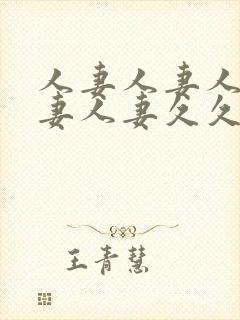 人妻人妻人
妻人妻欠欠
王青慧